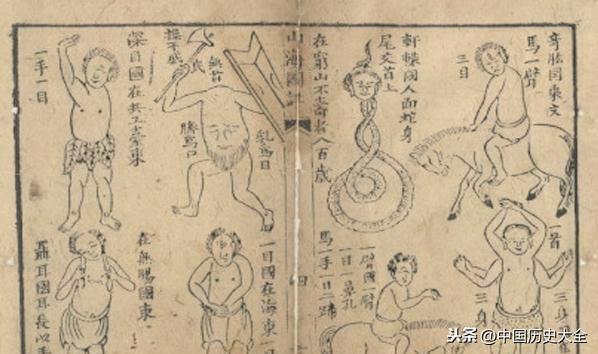 奇肱国乘文
馬一臂
三目
軒轅國人面蛇身
尾交首上
在窮山不壽者八百歲
一首
三身
三身
一臂國一臂
一目一鼻孔
馬一手
目二蹄
山海圖
四
無首
乳爲目
臍爲口
深目國在共工臺東
一手一目
一目國在海東一
在無腸國東
聶耳國耳長以手
头条 @中国历史大全